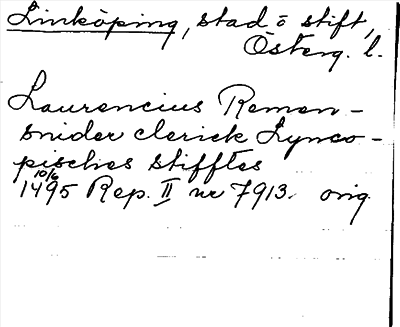 Linköping, stad o stift,
Österg. l.
Laurencius Remen-
snider clerick Lynco-
pisches stifftes
10/6
1495 Rep. II nr 7913. orig.